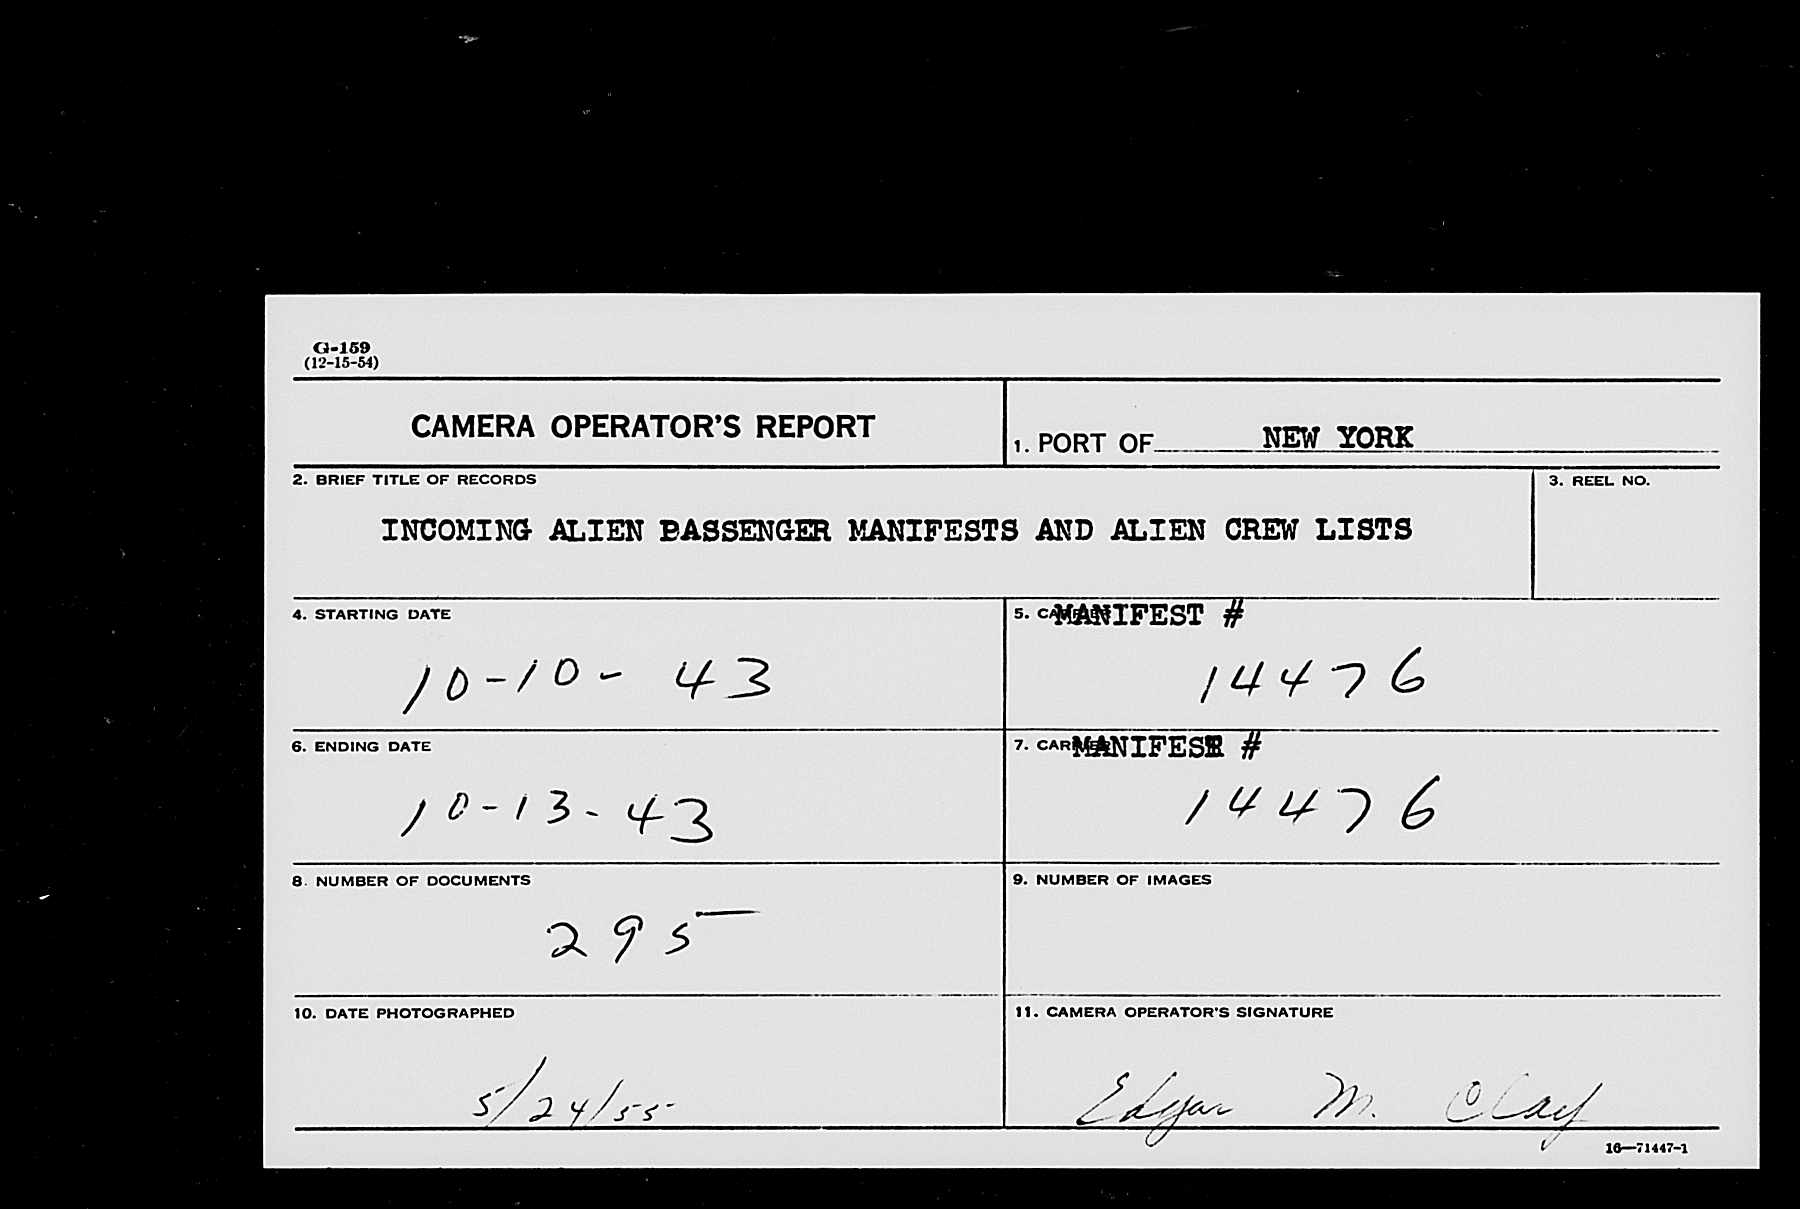 G-159
(12-15-54)
CAMERA OPERATOR'S REPORT
1. PORT OF NEW YORK
2. BRIEF TITLE OF RECORDS
3. REEL NO.
INCOMING ALIEN PASSENGER MANIFESTS AND ALIEN CREW LISTS
4. STARTING DATE
5. CARRIER MANIFEST #
10-10-43
14476
6. ENDING DATE
7. CARRIER MANIFEST #
10-13-43
14476
8. NUMBER OF DOCUMENTS
9. NUMBER OF IMAGES
295
10. DATE PHOTOGRAPHED
11. CAMERA OPERATOR'S SIGNATURE
5/24/55
Edgar M. Clay
16—71447-1